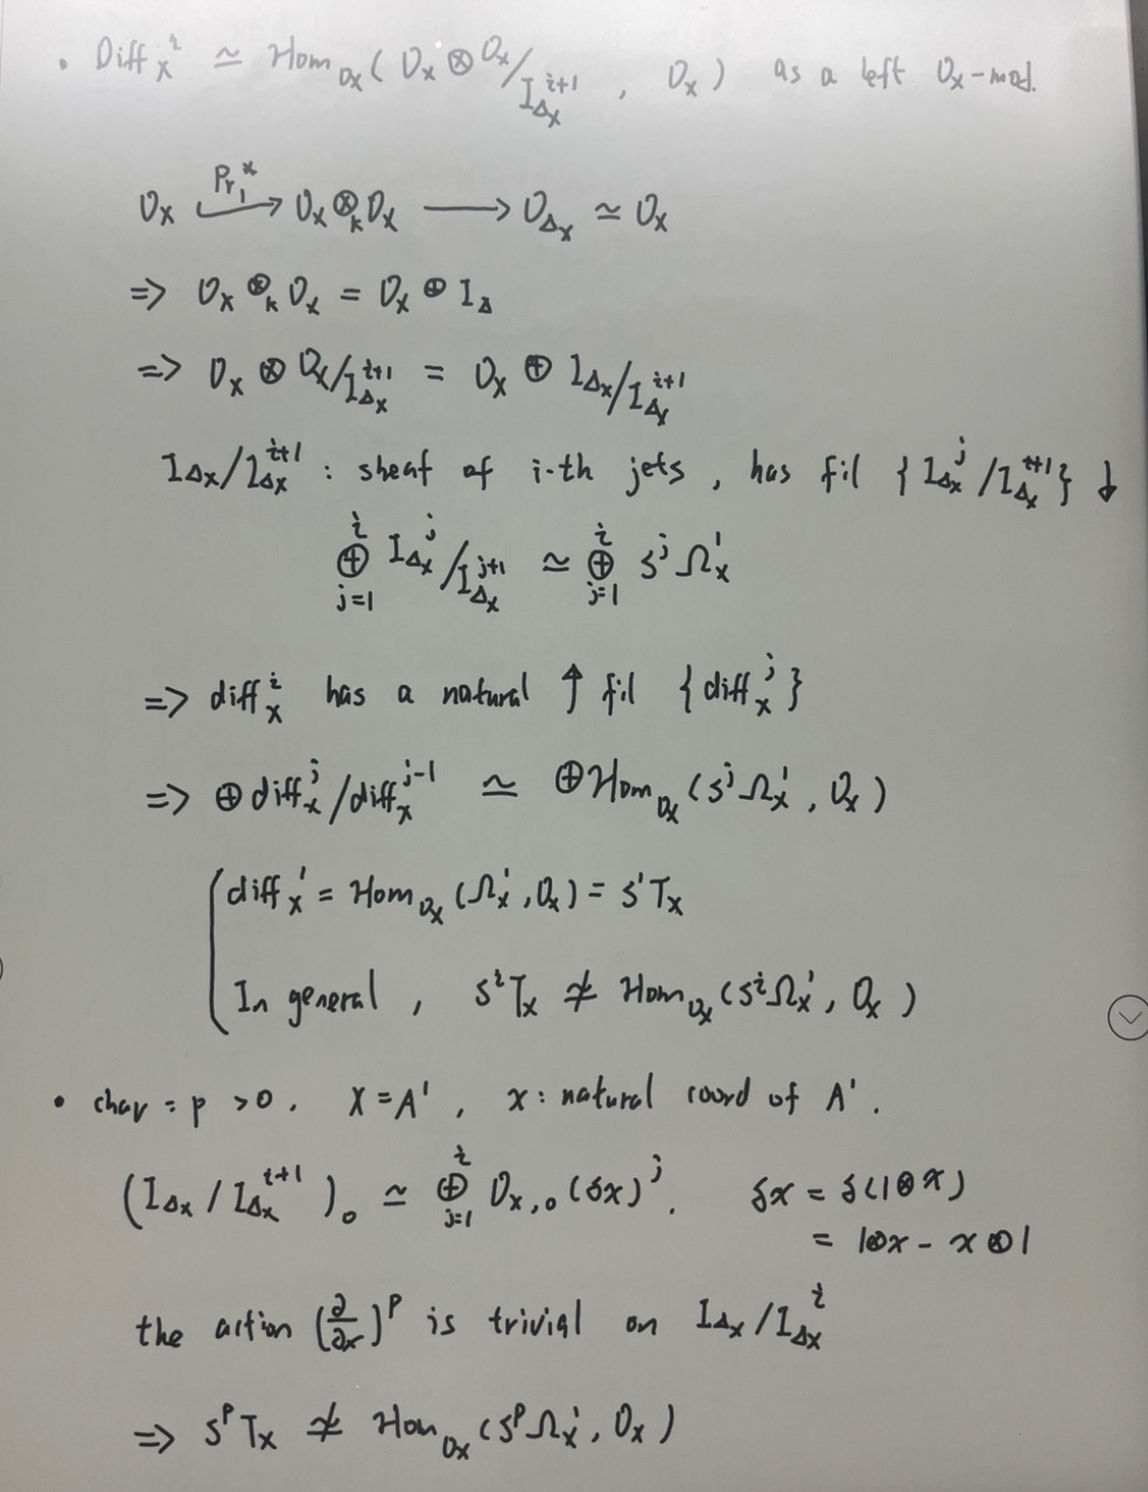 • Diff_X^i ≃ Hom_{O_X}(O_X ⊗ O_X/I_{Δ_X}^{i+1}, O_X) as a left O_X-mod.
O_X ↪^{Pr_1^*} O_X ⊗_k O_X ⟶ O_{Δ_X} ≃ O_X
=> O_X ⊗_k O_X = O_X ⊕ I_Δ
=> O_X ⊗ O_X/I_{Δ_X}^{i+1} = O_X ⊕ I_{Δ_X}/I_{Δ_X}^{i+1}
I_{Δ_X}/I_{Δ_X}^{i+1} : sheaf of i-th jets, has fil {I_{Δ_X}^j/I_{Δ_X}^{i+1}} ↓
⊕_{j=1}^i I_{Δ_X}^j/I_{Δ_X}^{j+1} ≃ ⊕_{j=1}^i S^j Ω_X^1
=> diff_X^i has a natural ↑ fil {diff_X^j}
=> ⊕ diff_X^j/diff_X^{j-1} ≃ ⊕ Hom_{O_X}(S^j Ω_X^1, O_X)
diff_X^1 = Hom_{O_X}(Ω_X^1, O_X) = S^1 T_X
In general, S^i T_X ≄ Hom_{O_X}(S^i Ω_X^1, O_X)
• char = p > 0. X = A^1, x : natural coord of A^1.
(I_{Δ_X}/I_{Δ_X}^{i+1})_0 ≃ ⊕_{j=1}^i O_{X,0}(δx)^j. δx = δ(1⊗x)
= 1⊗x - x⊗1
the action (∂/∂x)^p is trivial on I_{Δ_X}/I_{Δ_X}^i
=> S^p T_X ≄ Hom_{O_X}(S^p Ω_X^1, O_X)